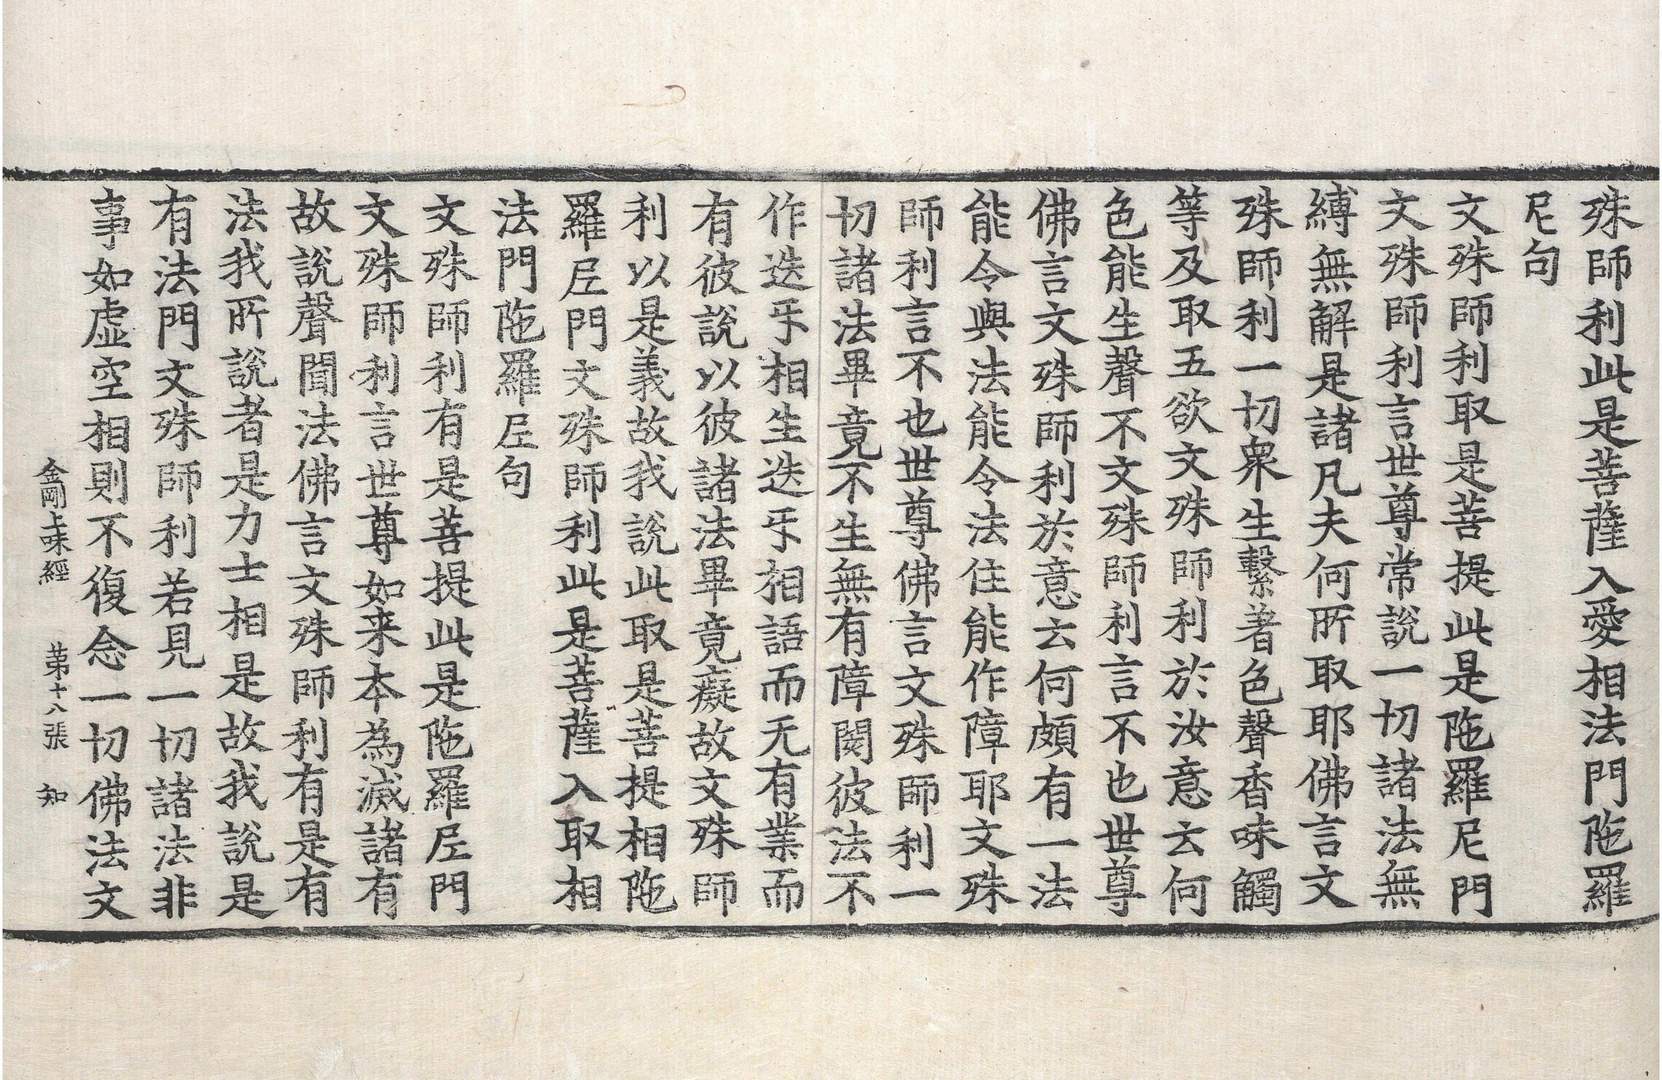 殊師利此是菩薩入愛相法門陁羅
尼句
文殊師利取是菩提此是陁羅尼門
文殊師利言世尊常說一切諸法無
縛無解是諸凡夫何所取耶佛言文
殊師利一切衆生繫著色聲香味觸
等及取五欲文殊師利於汝意云何
色能生聲不文殊師利言不也世尊
佛言文殊師利於意云何頗有一法
能令與法能令法住能作障耶文殊
師利言不也世尊佛言文殊師利一
切諸法畢竟不生無有障閡彼法不
作迭㸦相生迭㸦相語而无有業而
有彼說以彼諸法畢竟癡故文殊師
利以是義故我說此取是菩提相陁
羅𡰱門文殊師利此是菩薩入取相
法門陁羅𡰱句
文殊師利有是菩提此是陁羅𡰱門
文殊師利言世尊如来本為滅諸有
故說聲聞法佛言文殊師利有是有
法我所說者是力士相是故我說是
有法門文殊師利若見一切諸法非
事如虛空相則不復念一切佛法文
金剛上味經 苐十八張 知